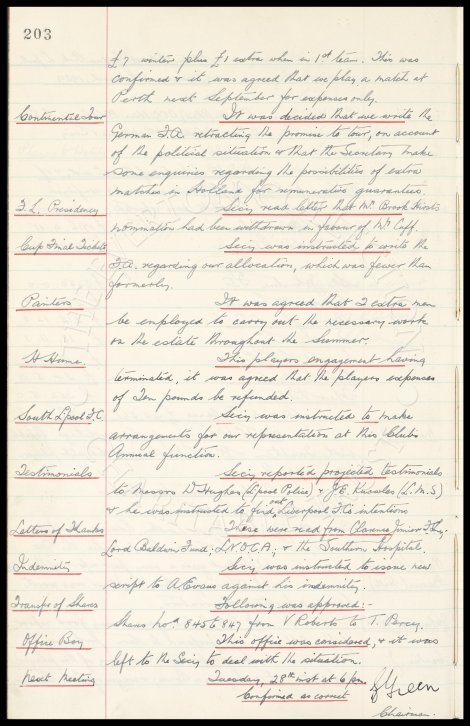 203
£7 winter plus £1 extra when in 1st team. This was
confirmed & it was agreed that we play a match at
Perth next September for expenses only.
Continental Tour It was decided that we write the
German F.A. retracting the promise to tour, on account
of the political situation & that the Secretary make
some enquiries regarding the possibilities of extra
matches in Holland for remunerative guarantees.
F.L. Presidency Secy read letter that Mr Brook Hirst's
nomination had been withdrawn in favour of Mr Cuff.
Cup Final Tickets Secy was instructed to write the
F.A. regarding our allocation, which was fewer than
formerly.
Painters It was agreed that 2 extra men
be employed to carry out the necessary work
on the estate throughout the Summer.
H Hume This players engagement having
terminated, it was agreed that the players expenses
of Ten pounds be refunded.
South L'pool F.C. Secy was instructed to make
arrangements for our representation at this Clubs
Annual function.
Testimonials Secy reported projected testimonials
to Messrs D Hughes (L'pool Police) & J.E. Knowles (L.M.S)
& he was instructed to find out Liverpool F.C's intentions
Letters of Thanks These were read from Clarence Junior F.
Lord Baldwin Fund; L.N.O.C.A; & the Southern Hospital.
Indemnity Secy was instructed to issue new
script to A Evans against his indemnity.
Transfer of Shares Following was approved:-
Shares nos. 845 to 847 from V Roberts to T. Percy.
Office Boy This office was considered, & it was
left to the Secy to deal with the situation.
Next Meeting Tuesday, 28th inst at 6 pm.
Confirmed as correct
Green
Chairman.